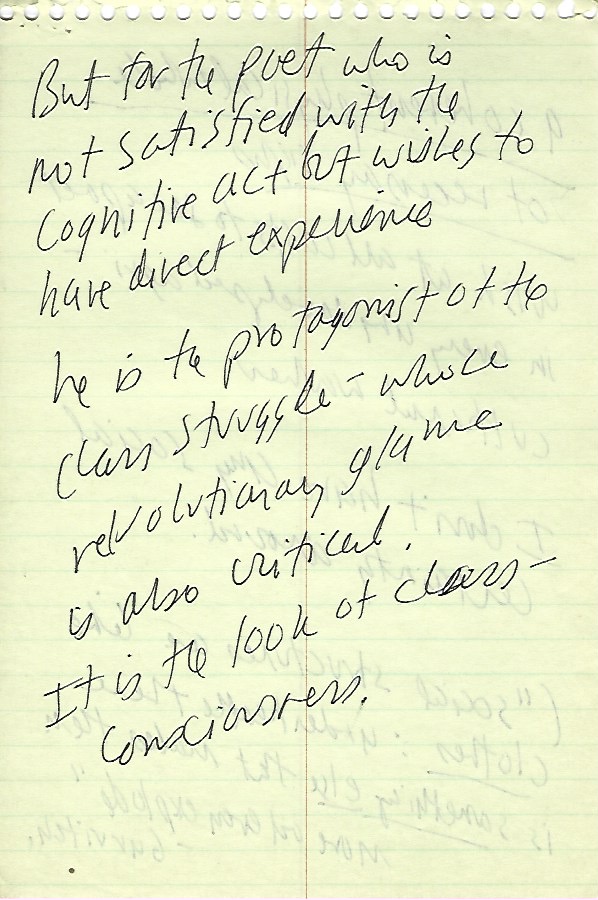 But for the poet who is
not satisfied with the
cognitive act but wishes to
have direct experience
he is the protagonist of the
class struggle – whose
revolutionary glance
is also critical.
It is the look of class–
consciousness.